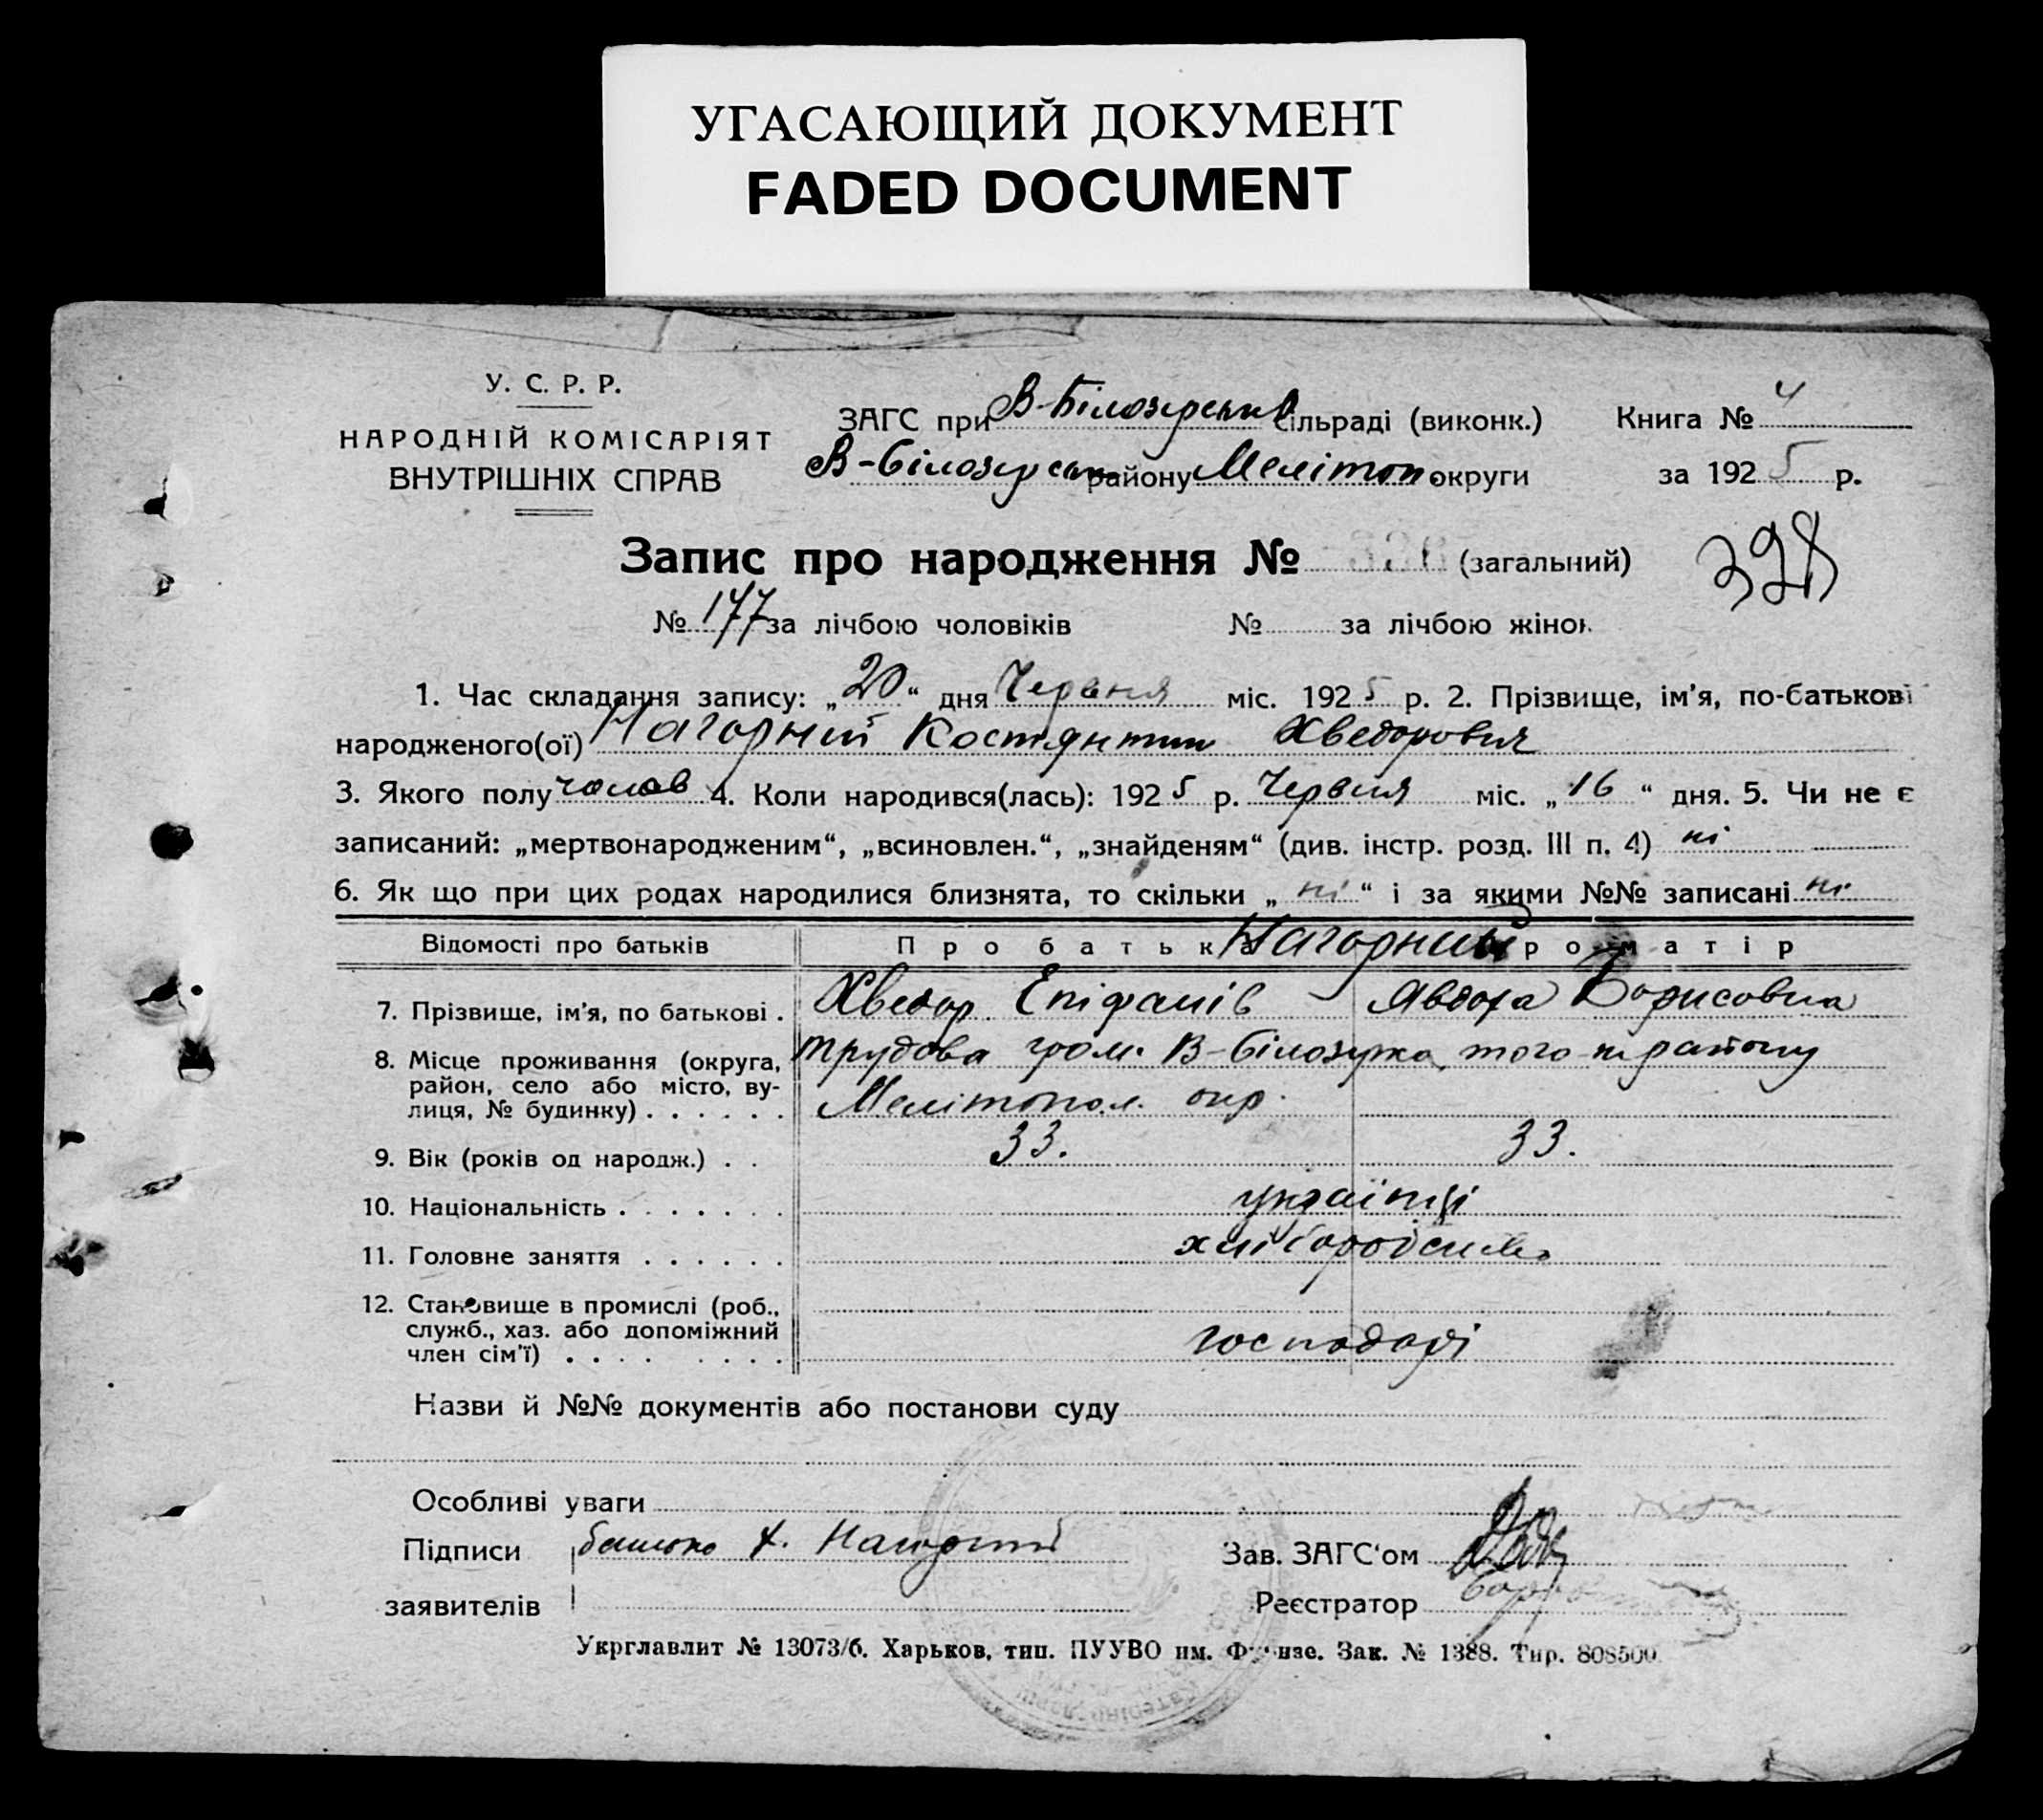 УГАСАЮЩИЙ ДОКУМЕНТ
FADED DOCUMENT
У. С. Р. Р.
НАРОДНІЙ КОМІСАРІЯТ
ВНУТРІШНІХ СПРАВ
ЗАГС при В-Білозірській сільраді (виконк.) Книга № 4
В-Білозірськ району Мелітоп. округи за 1925 р.
Запис про народження № (загальний) 328
№ 177 за лічбою чоловіків № за лічбою жінок
1. Час складання запису: „20“ дня Червня міс. 1925 р. 2. Прізвище, ім’я, по-батькові
народженого(ої) Нагорний Костянтин Хведорович
3. Якого полу чолов 4. Коли народився(лась): 1925 р. Червня міс. „16“ дня. 5. Чи не є
записаний: „мертвонародженим“, „всиновлен.“, „знайденям“ (див. інстр. розд. III п. 4) ні
6. Як що при цих родах народилися близнята, то скільки „ні“ і за якими №№ записані ні
Відомості про батьків Про батька Нагорний Про матір
7. Прізвище, ім’я, по батькові . Хведор Епіфанів Явдоха Борисовна
8. Місце проживання (округа, Трудова гром. В-Білозірка, того-ж району
район, село або місто, ву-
лиця, № будинку) . . . . . . Мелітопол. окр.
9. Вік (років од народж.) . . 33. 33.
10. Національність . . . . . . . українці
11. Головне заняття . . . . . . хліборобство
12. Становище в промислі (роб.,
служб., хаз. або допоміжний
член сім’ї) . . . . . . . . господарі
Назви й №№ документів або постанови суду
Особливі уваги
Підписи батько Х. Нагорний Зав. ЗАГС‘ом
заявителів Реєстратор
Укрглавлит № 13073/б. Харьков, тип. ПУУВО им. Фрунзе. Зак. № 1388. Тир. 808500.